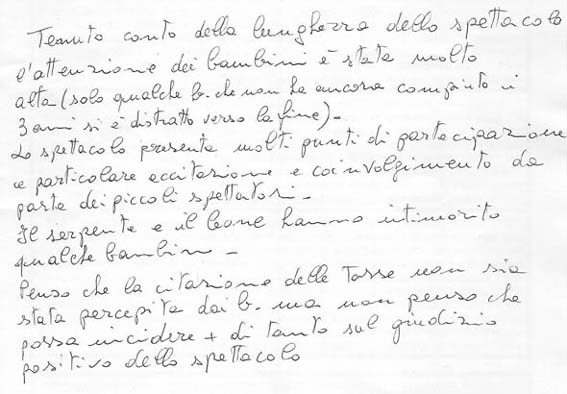 Tenuto conto della lunghezza dello spettacolo
l'attenzione dei bambini è stata molto
alta (solo qualche b. che non ha ancora compiuto i
3 anni si è distratto verso la fine).
Lo spettacolo presenta molti punti di partecipazione
e particolare eccitazione e coinvolgimento da
parte dei piccoli spettatori.
Il serpente e il leone hanno intimorito
qualche bambino -
Penso che la citazione delle Tasse non sia
stata percepita dai b. ma non penso che
possa incidere + di tanto sul giudizio
positivo dello spettacolo